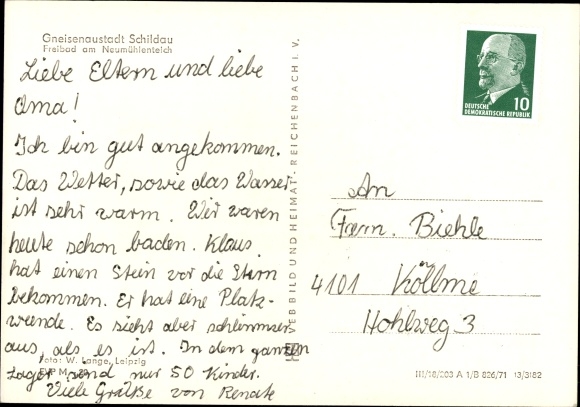 Gneisenaustadt Schildau
Freibad am Neumühlenteich
Liebe Eltern und liebe
Oma!
Ich bin gut angekommen.
Das Wetter, sowie das Wasser
ist sehr warm. Wir waren
heute schon baden. Klaus
hat einen Stein vor die Stirn
bekommen. Er hat eine Platz-
wunde. Es sieht aber schlimmer
aus, als es ist. In dem ganzen
Foto: W. Lange, Leipzig
Lager sind nur 50 Kinder.
Viele Grüße von Renate
VEB BILD UND HEIMAT · REICHENBACH I. V.
10
DEUTSCHE
DEMOKRATISCHE REPUBLIK
An
Fam. Biehle
4101 Köllme
Hohlweg 3
III/18/203 A 1/B 826/71 13/3182